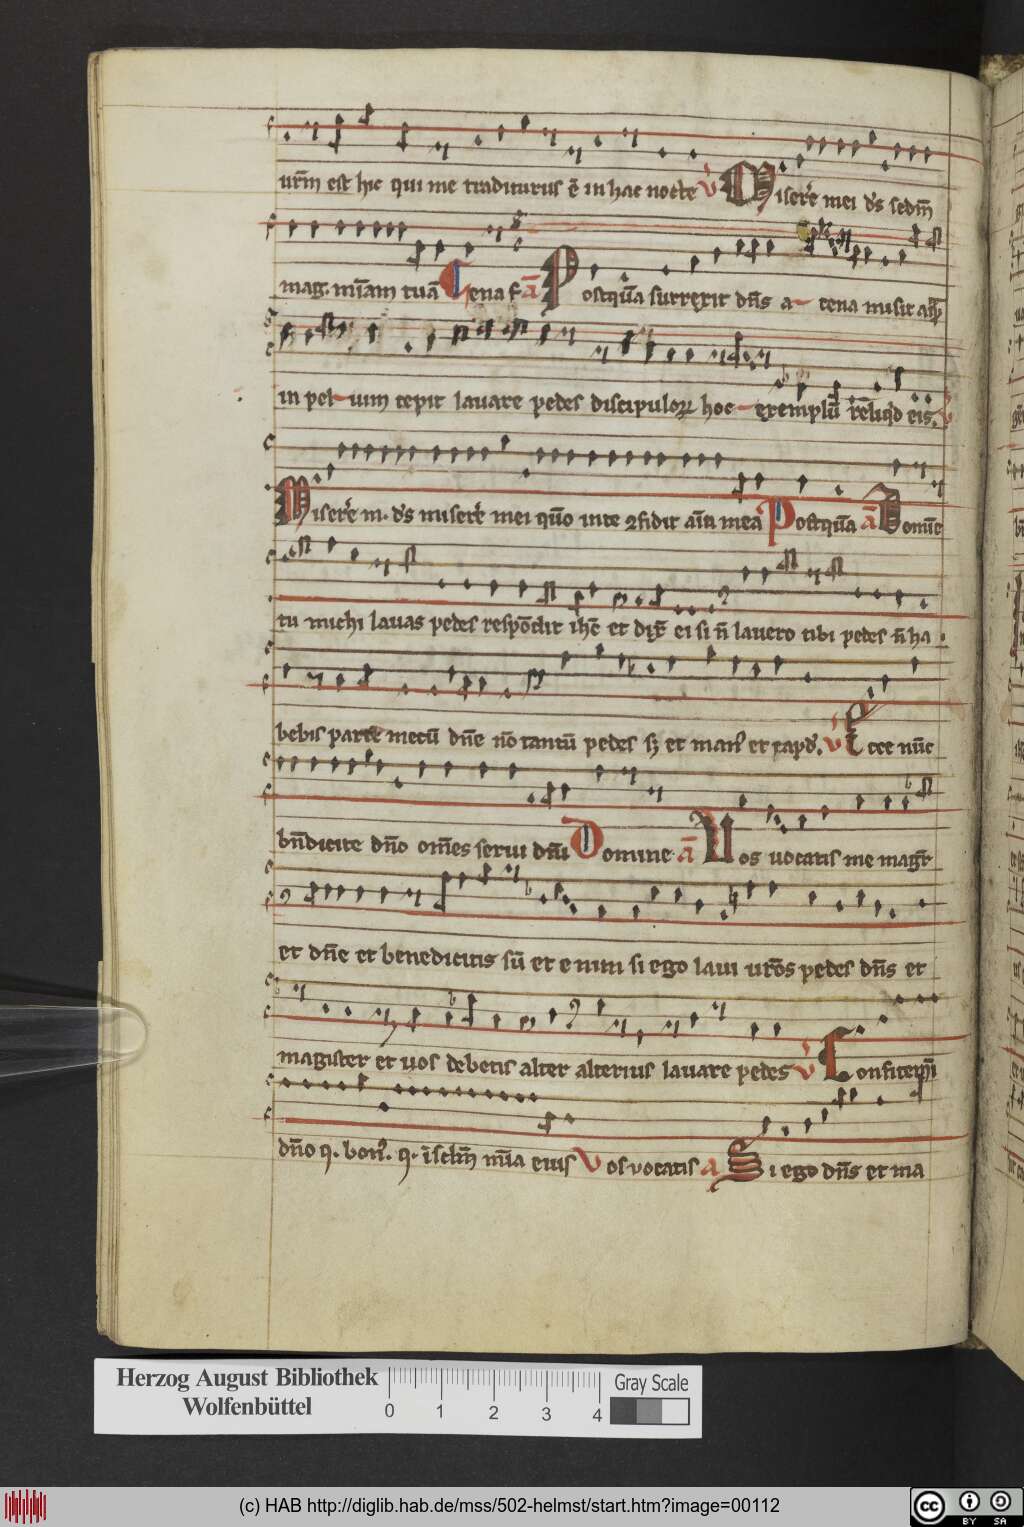 urm̄ est hic qui me traditurus ē in hac nocte v̄ Miserē mei ds sedm̄
mag. mīam tuā Cena f. ā Postquā surrexit dn̄s a cena misit aqͣ
in peluim cepit lauare pedes discipulorꝝ hoc exemplū reliqͥd eis. v̄
Miserē m. ds miserē mei qm̄o in te ꝯfidit aīa mea Postquā ā Domīe
tu michi lauas pedes respōdit ihē et dix̄ ei si n̄ lauero tibi pedes n̄ ha
bebis partē mecū dn̄e nō tantū pedes sꝫ et man᷒ et capd. v̄ Ecce nūc
bn̄dicite dn̄o om̄es serui dn̄i Domine ā Uos uocatis me magr̄
et dn̄e et benedicitis sū et enim si ego laui uros pedes dn̄s et
magister et uos debetis alter alterius lauare pedes v̄ Confitemī
dn̄o q. bon᷒. q. ī sclm̄ mīa eius Vos vocatis A Si ego dn̄s et ma
Herzog August Bibliothek
Wolfenbüttel
0 1 2 3 4
Gray Scale
(c) HAB http://diglib.hab.de/mss/502-helmst/start.htm?image=00112
cc BY SA